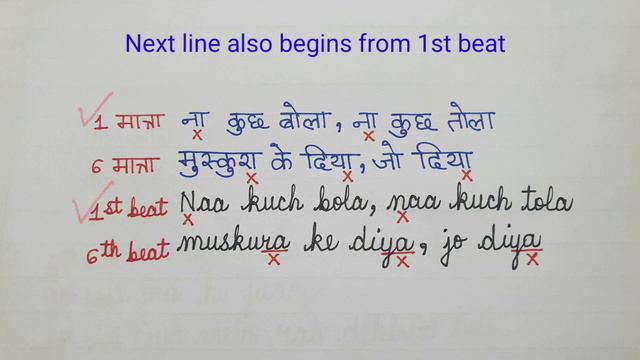 Next line also begins from 1st beat
1 मात्रा ना कुछ बोला, ना कुछ तोला
x x
6 मात्रा मुस्कुरा के दिया, जो दिया
x x x
1st beat Naa kuch bola, naa kuch tola
x x
6th beat muskura ke diya, jo diya
x x x